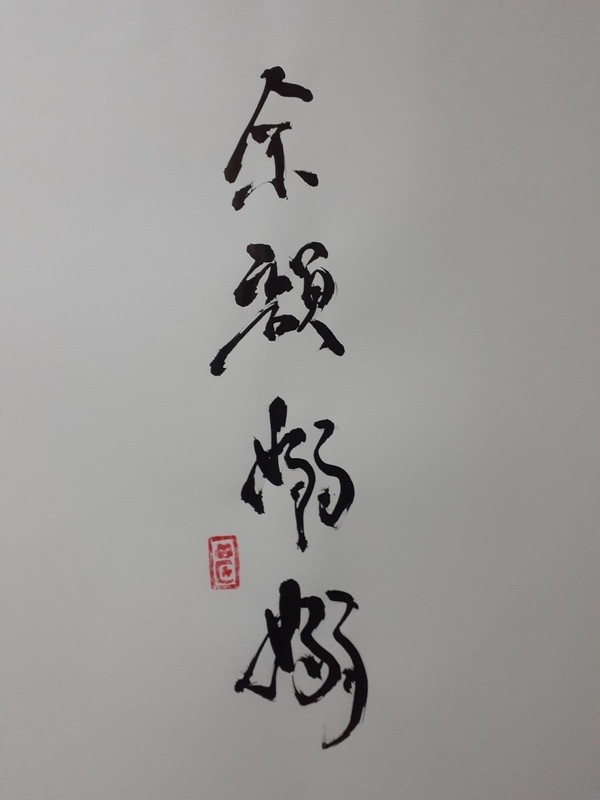 余韻嫋嫋